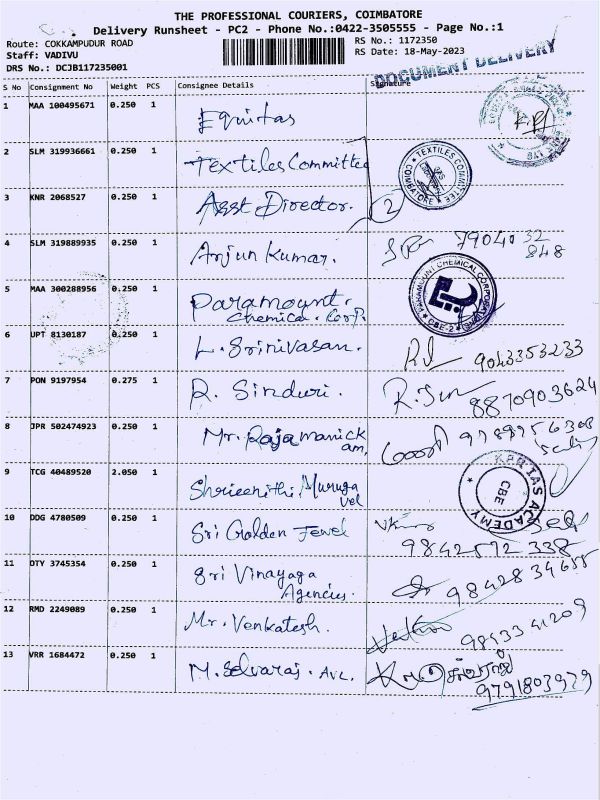 THE PROFESSIONAL COURIERS, COIMBATORE
Delivery Runsheet - PC2 - Phone No.:0422-3505555 - Page No.:1
Route: COKKAMPUDUR ROAD
Staff: VADIVU
DRS No.: DCJB117235001
RS No.: 1172350
RS Date: 18-May-2023
DOCUMENT DELIVERY
S No Consignment No Weight PCS Consignee Details Signature
1 MAA 100495671 0.250 1 Equitas
2 SLM 319936661 0.250 1 Textiles Committee
TEXTILES COMMITTEE COIMBATORE
3 KNR 2068527 0.250 1 Asst Director. 2
4 SLM 319889935 0.250 1 Arjun Kumar. 7904032
848
5 MAA 300288956 0.250 1 Paramount.
Chemical. Corp.
PARAMOUNT CHEMICAL CORPORATION CBE-2
6 UPT 8130187 0.250 1 L. Srinivasan. 9043353233
7 PON 9197954 0.275 1 R. Sinduri. R. Sin 8870903624
8 JPR 502474923 0.250 1 Mr. Rajamanick
am,
9 TCG 40489520 2.050 1 Shrieenithi, Muruga
vel
KPR IAS ACADEMY CBE
10 DDG 4780509 0.250 1 Sri Golden Jewel
9842572 338
11 OTY 3745354 0.250 1 Sri Vinayaga
Agencies. 9842834655
12 RMD 2249089 0.250 1 Mr. Venkatesh. 9843341209
13 VRR 1684472 0.250 1 M. Selvaraj. AVL.
9791803979